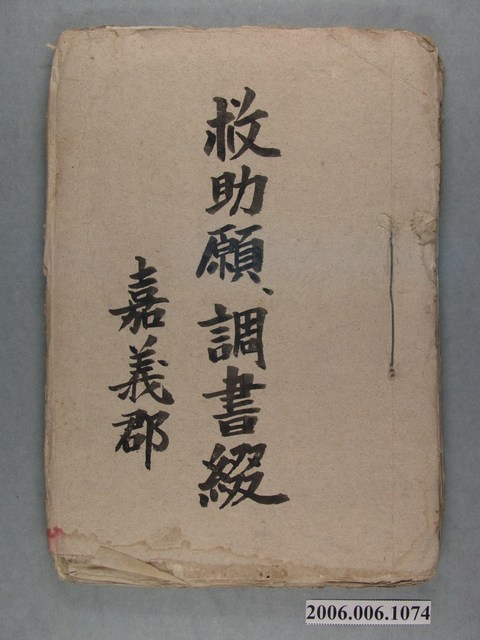 救助願、調書綴
嘉義郡
2006.006.1074